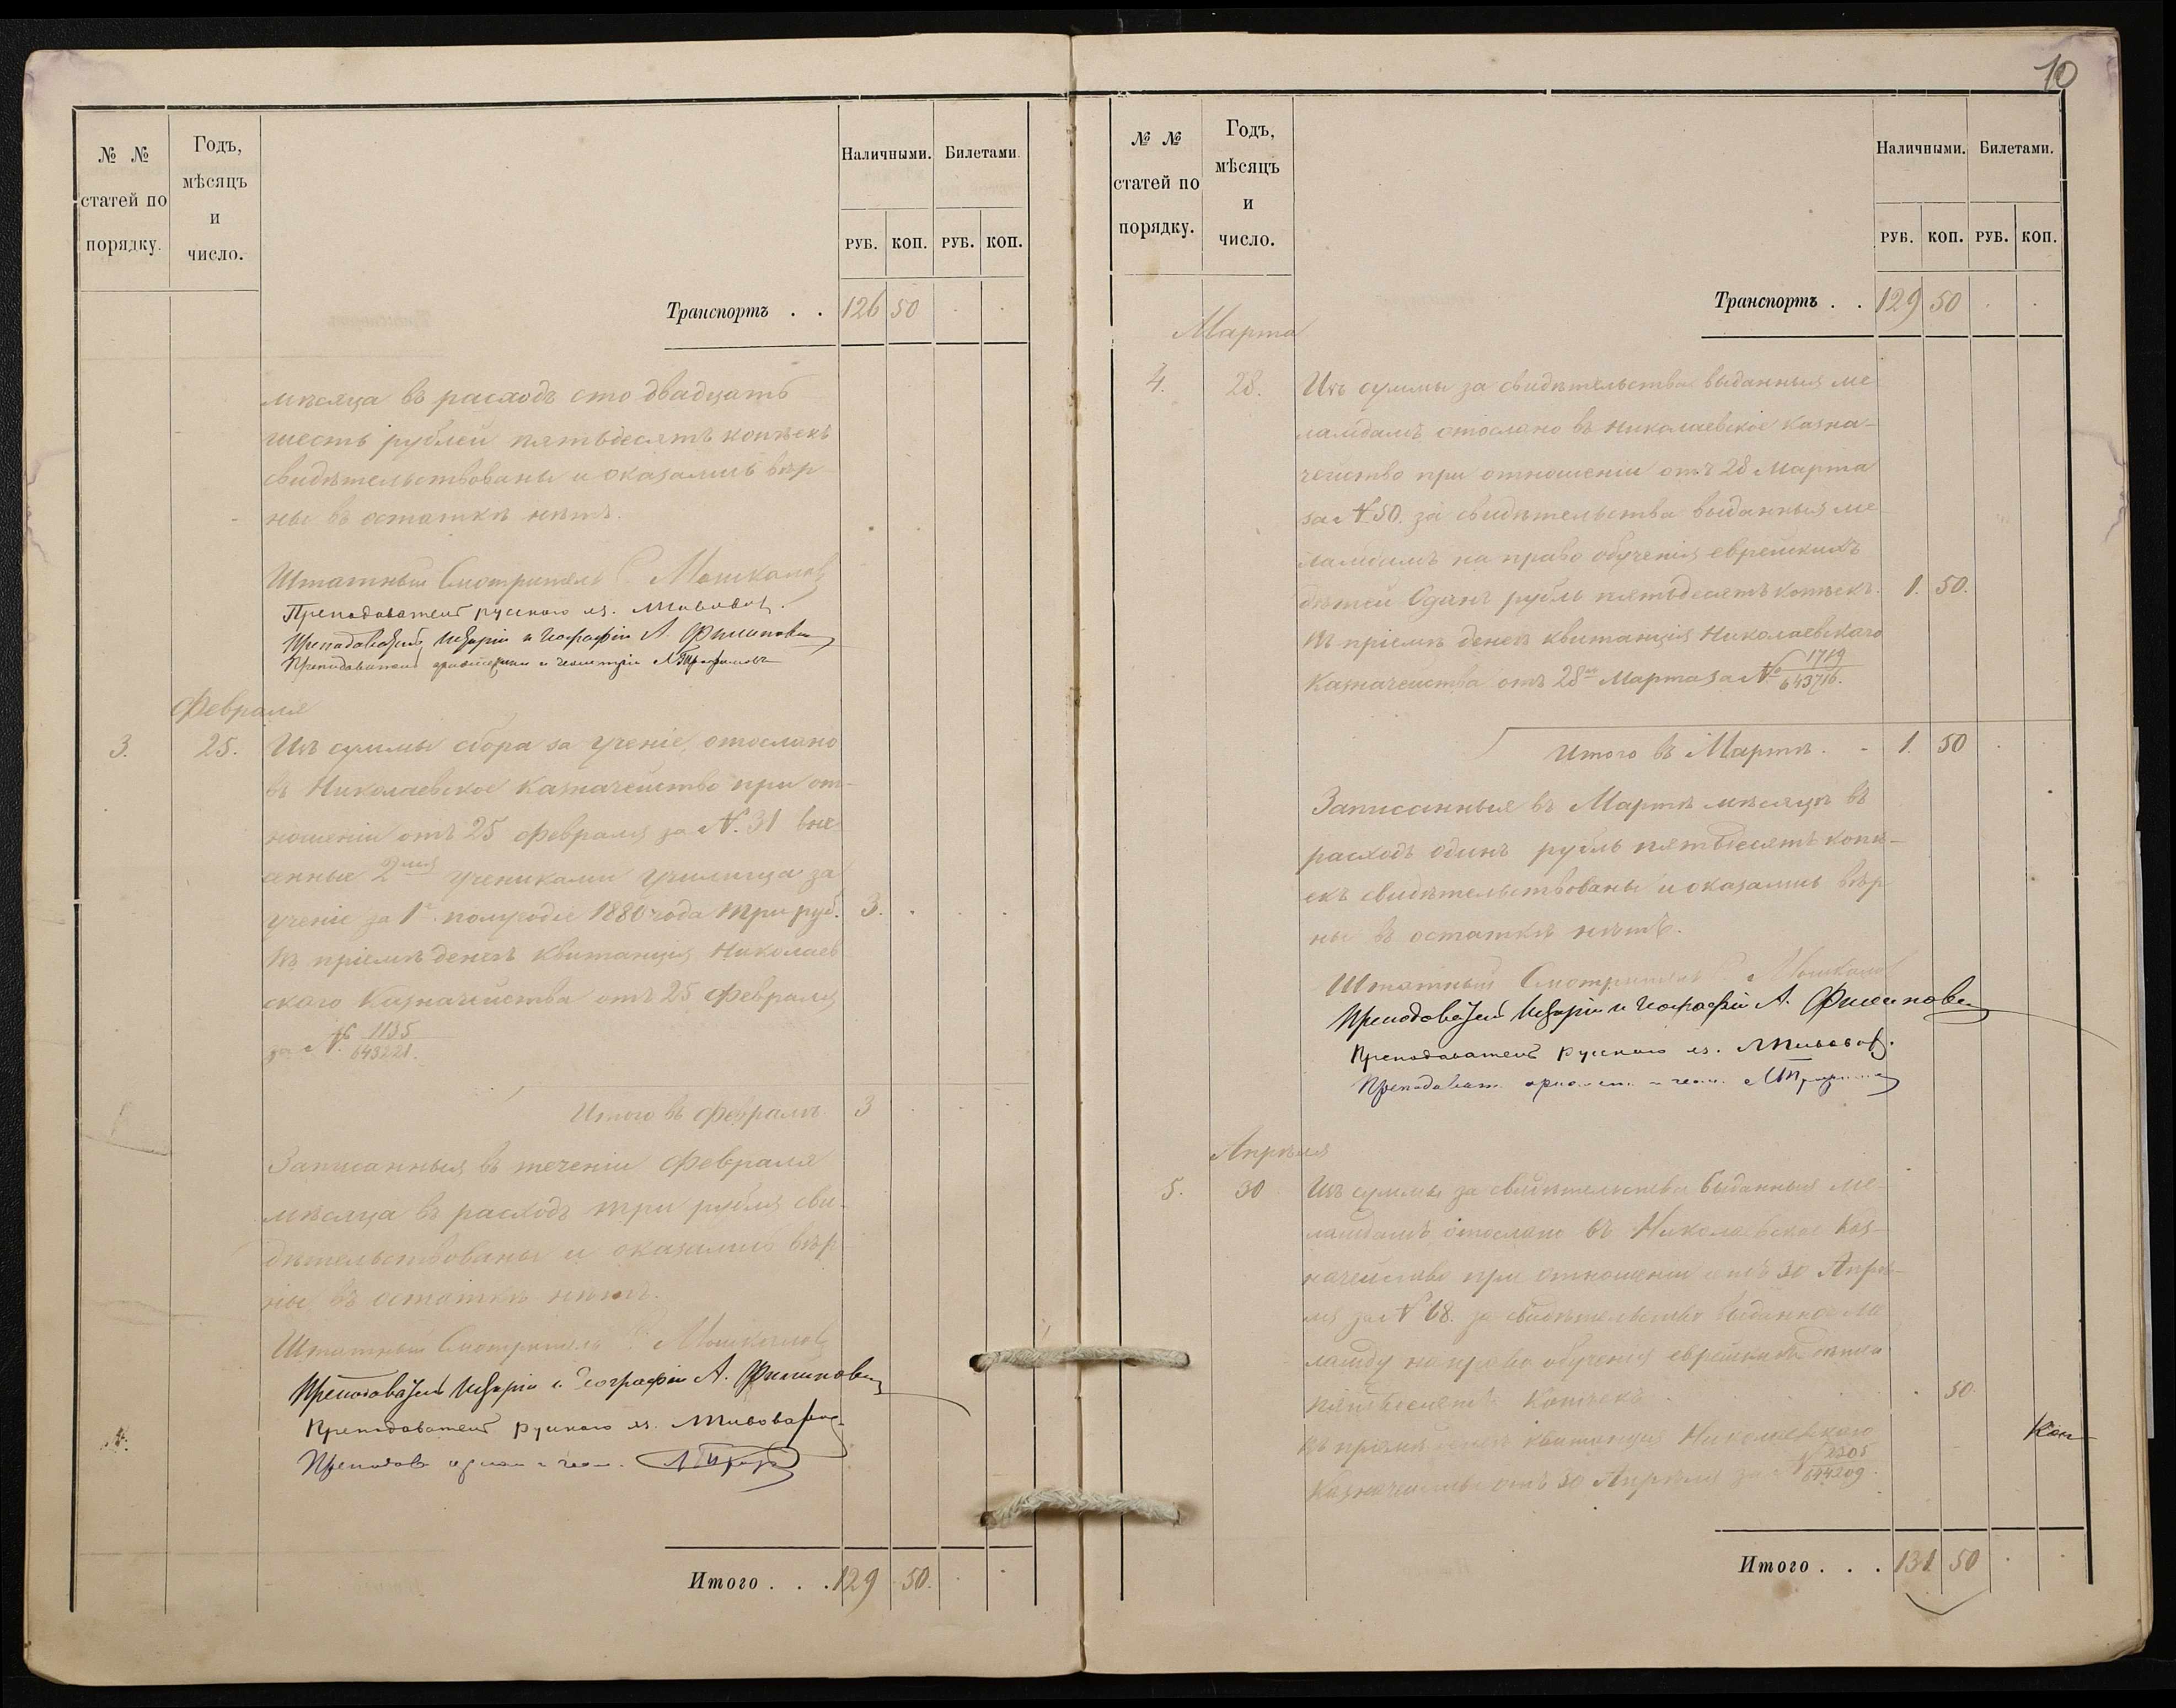 № №
статей по
порядку.
Годъ,
мѣсяцъ
и
число.
Наличными.
Билетами.
РУБ.
КОП.
РУБ.
КОП.
Транспортъ . . 126 50
мѣсяца въ расходъ сто двадцать
шесть рублей пятьдесятъ копѣекъ
свидѣтельствованы и оказались вѣр-
ны въ остаткѣ нѣтъ.
Штатный Смотритель
Преподаватель русскаго яз.
Преподаватель Исторіи и Географіи А. Филипович
Преподаватель ариѳметики и геометріи
Февраля
3. 25. Изъ суммы сбора за ученіе, отослано
въ Николаевское Казначейство при от-
ношеніи отъ 25 Февраля за №. 31 вне-
сенные 2мя учениками училища за
ученіе за 1е полугодіе 1880 года три руб. 3.
Въ пріемѣ денегъ квитанція Николаев
скаго Казначейства отъ 25 Февраля
за № 1135
643221.
Итого въ Февралѣ 3
Записанныя въ теченіи Февраля
мѣсяца въ расходъ три рубля сви-
дѣтельствованы и оказались вѣр-
ны въ остаткѣ нѣтъ.
Штатный Смотритель
Преподаватель Исторіи и Географіи А. Филипович
Преподаватель русскаго яз.
Преподав. ариѳм. и геом.
Итого . . . 129 50.
10
№ №
статей по
порядку.
Годъ,
мѣсяцъ
и
число.
Наличными.
Билетами.
РУБ.
КОП.
РУБ.
КОП.
Транспортъ . . 129 50
Марта
4. 28. Изъ суммы за свидѣтельства выданныя ме-
ламдамъ отослано въ Николаевское Казна-
чейство при отношеніи отъ 28 Марта
за № 50. за свидѣтельства выданныя ме-
ламдамъ на право обученія еврейскихъ
дѣтей Одинъ рубль пятьдесятъ копѣекъ. 1. 50.
Въ пріемѣ денегъ квитанція Николаевскаго
Казначейства отъ 28го Марта за № 1719
643716.
Итого въ Мартѣ . . 1. 50
Записанныя въ Мартѣ мѣсяцѣ въ
расходъ одинъ рубль пятьдесятъ копѣ-
екъ свидѣтельствованы и оказались вѣр
ны въ остаткѣ нѣтъ.
Штатный Смотритель
Преподаватель Исторіи и Географіи А. Филипович
Преподаватель русскаго яз.
Преподават. ариѳмет. и геом.
Апрѣля
5. 30 Изъ суммы за свидѣтельства выданныя ме-
ламдамъ отослано въ Николаевское Каз-
начейство при отношеніи отъ 30 Апрѣ-
ля за № 68. за свидѣтельство выданное ме
ламду на право обученія еврейскихъ дѣтей
пятьдесятъ Копѣекъ . . 50.
Въ пріемѣ денегъ квитанція Николаевскаго
Казначейства отъ 30 Апрѣля за № 2205
644209.
Кон
Итого . . . 131 50